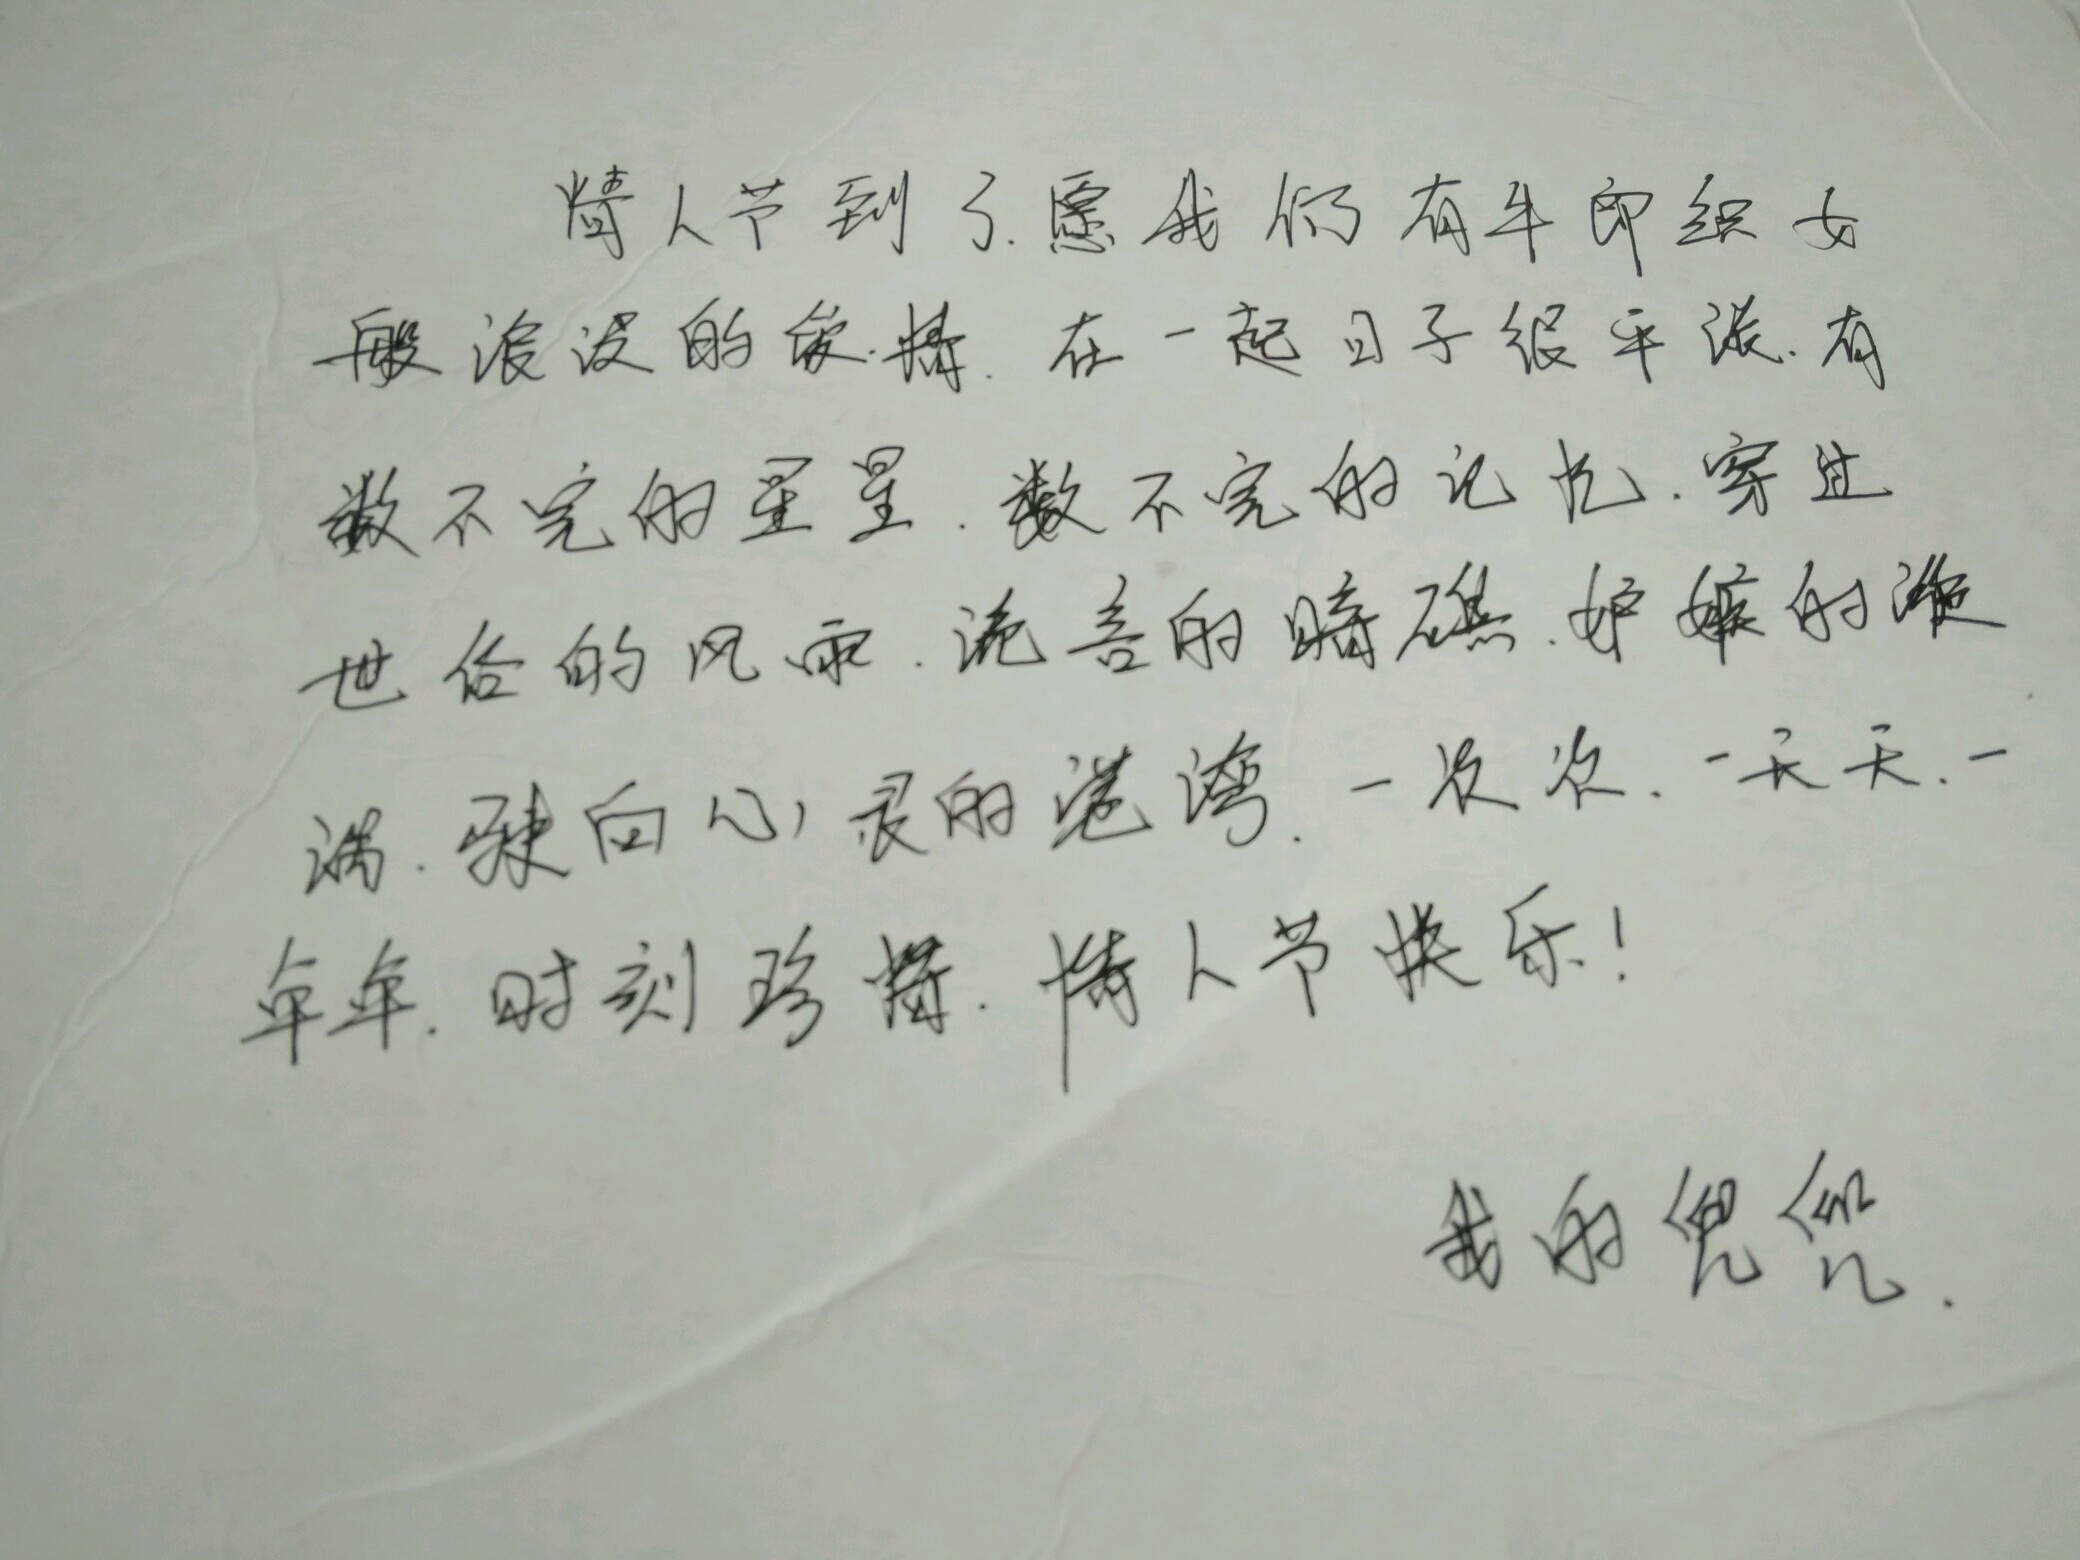 情人节到了.愿我们有牛郎织女
般浪漫的爱情.在一起日子很平淡.有
数不完的星星.数不完的记忆.穿过
世俗的风雨.流言的暗礁.妒嫉的漩
涡.驶向心灵的港湾.一次次.一天天.一
年年.时刻珍惜.情人节快乐!
我的兜兜.